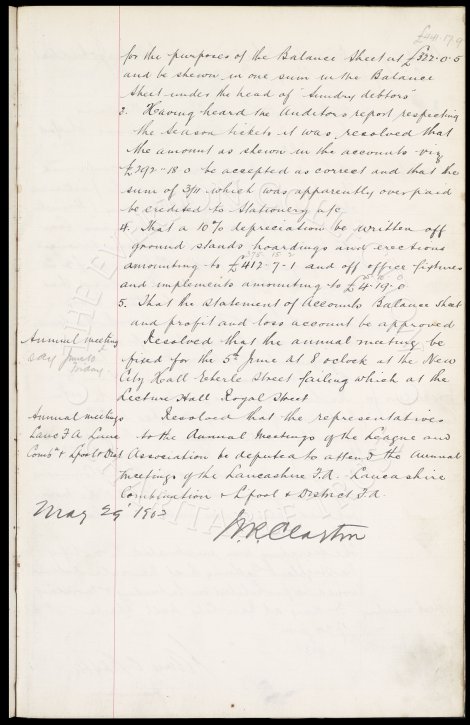 £441.17.9
for the purposes of the Balance Sheet at £322.0.5
and be shewn in one sum in the Balance
Sheet under the head of "Sundry debtors"
3. Having heard the Auditors report respecting
the Season tickets it was resolved that
the amount as shewn in the accounts viz
£292.18.0 be accepted as correct and that the
sum of 3/11 which was apparently over paid
be credited to Stationery a/c
4. That a 10% depreciation be written off
ground stands hoardings and erections
amounting to £412.7.1 and off office fixtures
and implements amounting to £4.19.0
5. That the Statement of Accounts Balance Sheet
and profit and loss account be approved
Annual meeting
say June 10
Friday
Resolved that the annual meeting be
fixed for the 5th June at 8 oclock at the New
City Hall Eberle Street failing which at the
Lecture Hall Royal Street
Annual meetings
Lancs F.A. Lancs
Combn & Lpool & Dist
Resolved that the representatives
to the Annual Meetings of the League and
Association be deputed to attend the Annual
meetings of the Lancashire F.A. Lancashire
Combination & Lpool & District F.A.
May 29 1903
W.R. Clayton